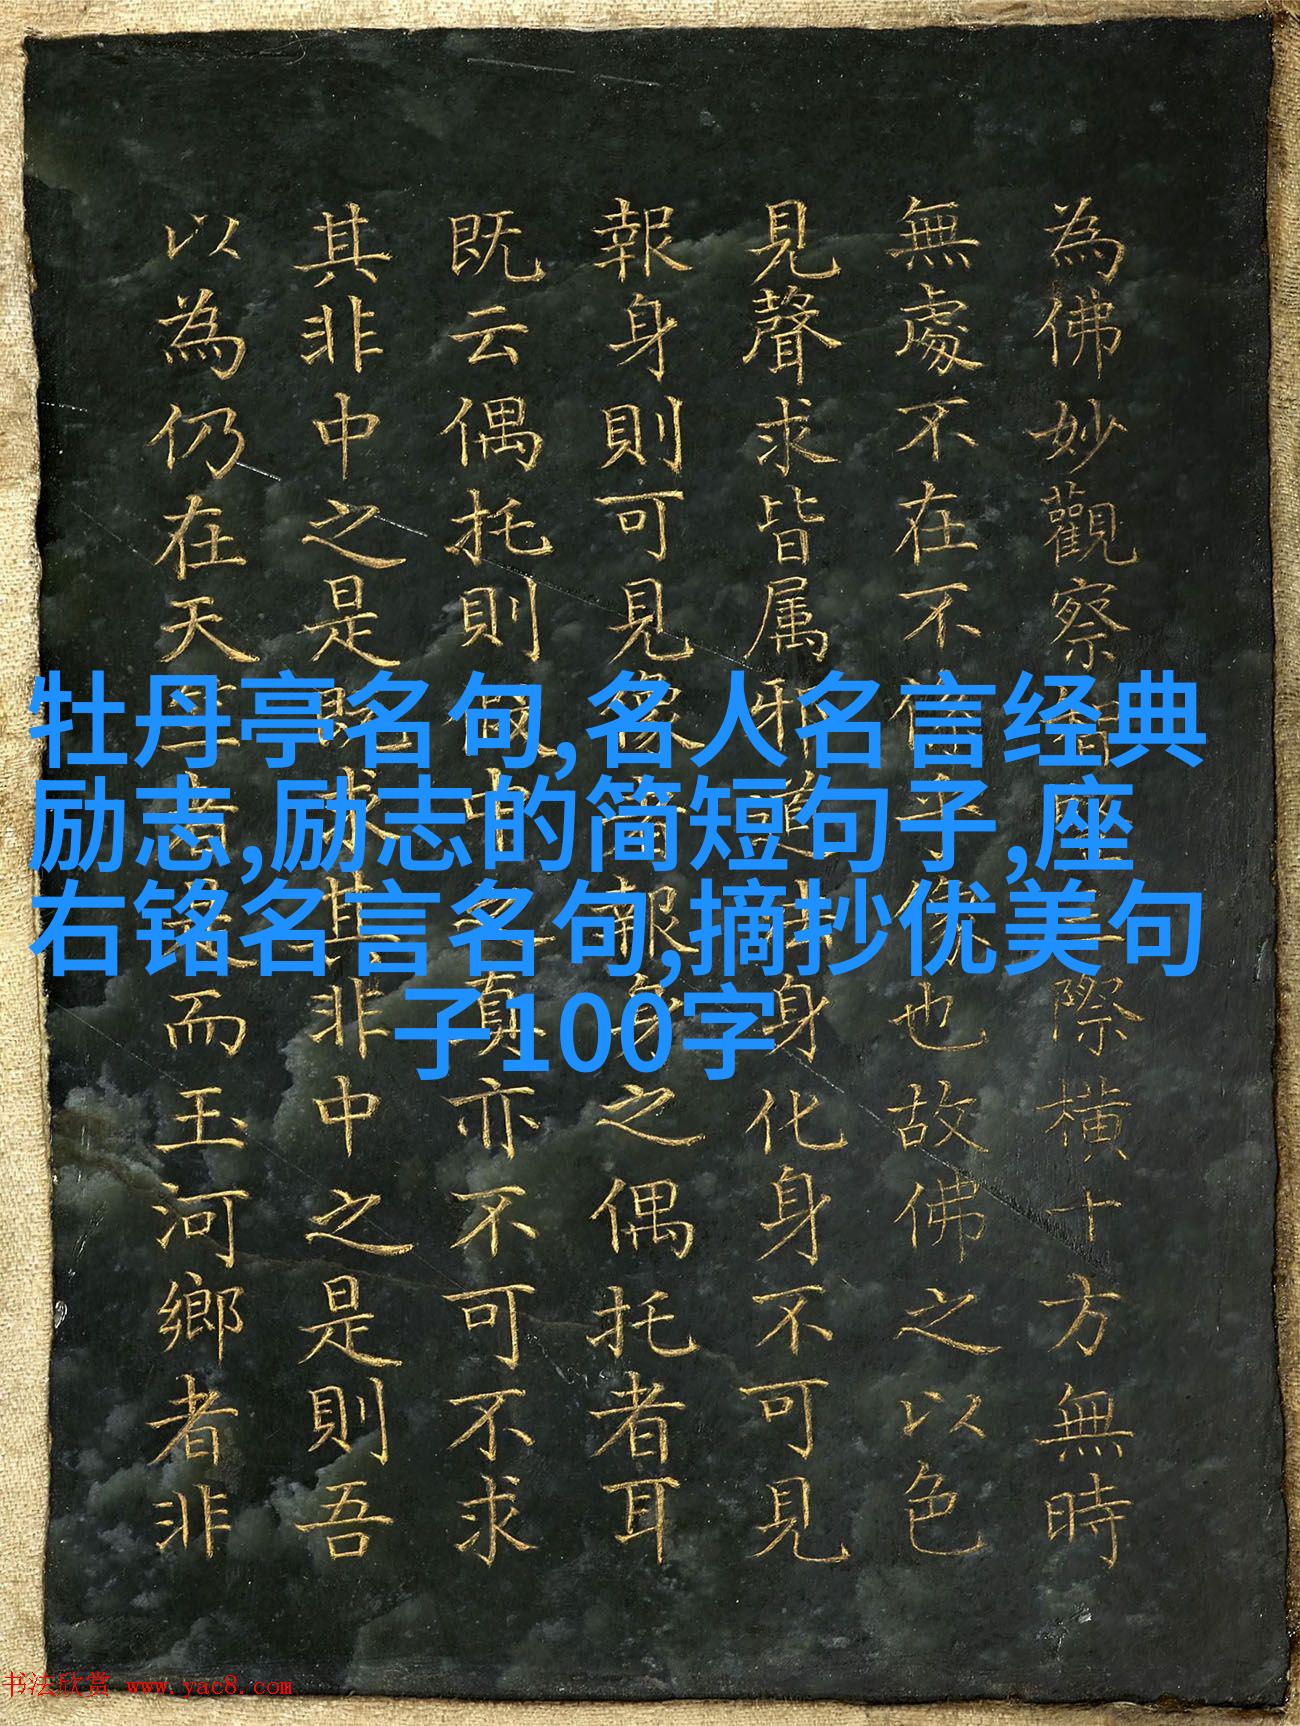 牡丹亭名句,名人名言经典
励志,励志的简短句子,座
右铭名言名句,摘抄优美句
子100字
為佛妙觀察 際橫十方無時
無處不在不 乎 也故佛之以色
見聲求皆属邪道 身化身不可見
報身則可見 報身之偶托者耳
既云偶托則 中 真亦不可不求
其非中之是既求其非中之是則吾
以為仍在天 者 而玉河鄉者非
书法欣赏 www.yac8.com